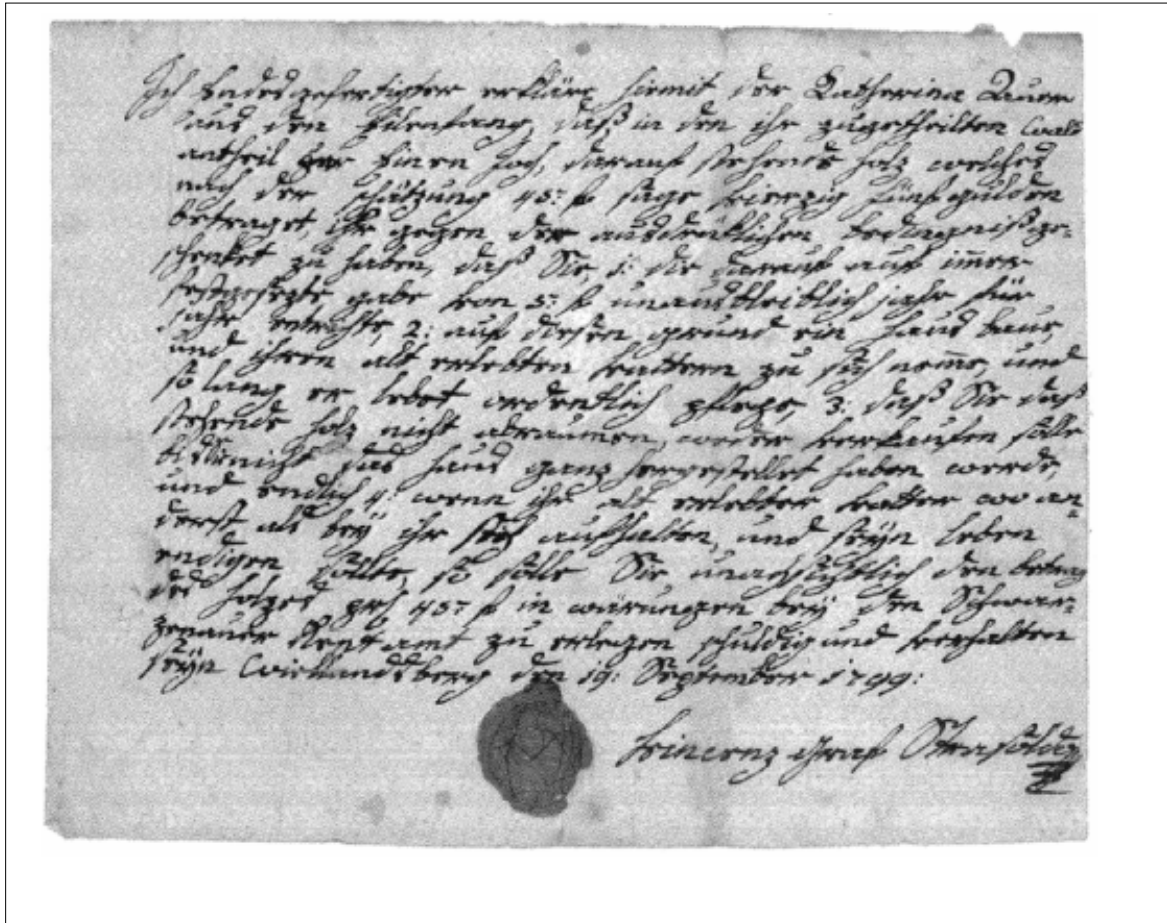 Ich Endesgefertigter erkläre hiemit der Katherina Bauer
aus den daß in den ihr zugetheilten Wald
antheil Einen Joch, darauf stehende holz welches
nach der schätzung 45: f sage vierzig fünf gulden
betraget, ihr gegen der ausdrüklichen bedingniß ge-
schenket zu haben, daß Sie, 1: die darauf auf immer
festgesezte gabe von 5: f unausbleiblich jahr für
jahr 2: auf diesen grund ein haus baue,
und ihren alt erlebten vattern zu sich neme, und
so lang er lebet ordentlich pflege, 3: daß Sie daß
stehende holz nicht abraumen, weder verkaufen solle
nicht das haus ganz hergestellet haben werde,
und endlich 4: wenn ihr alt erlebter vatter wo an-
derst als bey ihr sich aufhalten, und seyn leben
endigen sollte, so solle Sie den betrag
des holzes 45: f in bey den Schwar-
zenauer Rentamt zu erlegen schuldig und verhalten
seyn den 19: September 1799:
Vincenz Graf